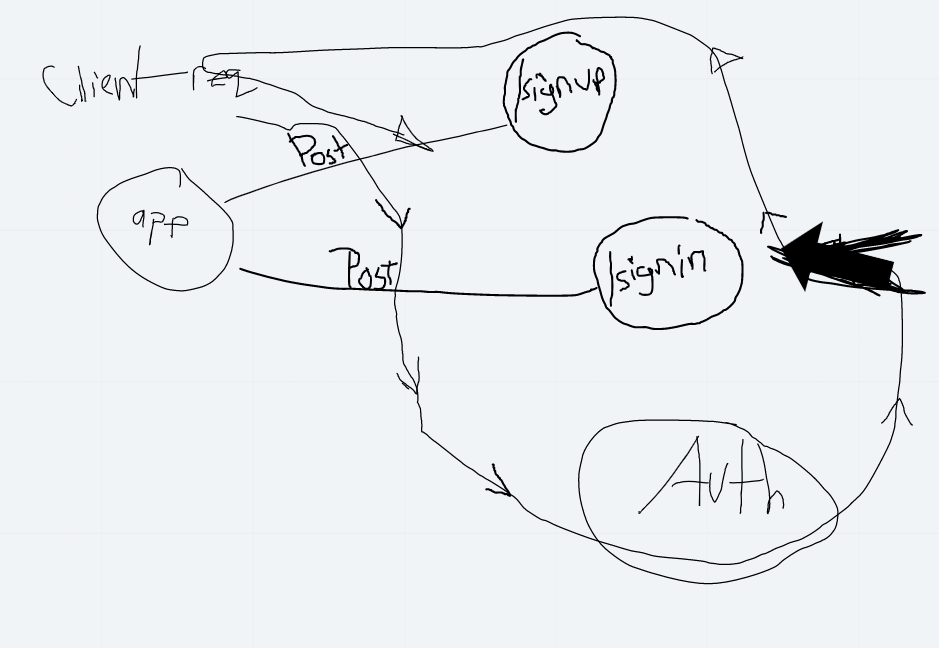 Client - req
/signup
Post
app
Post
/signin
Auth